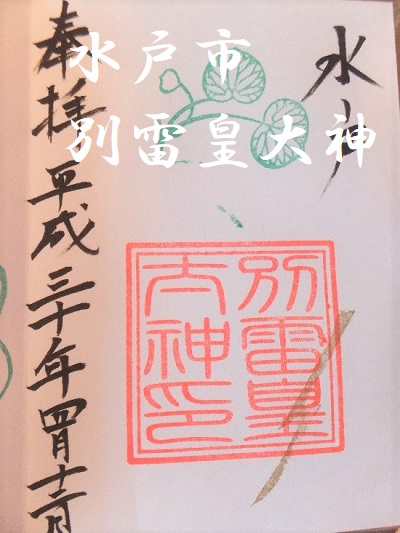 水戸市
別雷皇大神
水戸
別雷皇
大神印
奉拝 平成三十年四月十二日